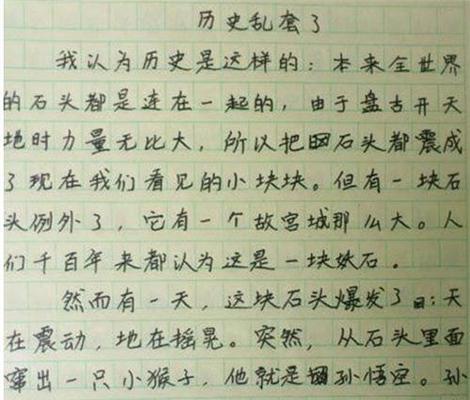 历史乱套了
我认为历史是这样的：本来全世界
的石头都是连在一起的，由于盘古开天
地时力量无比大，所以把石头都震成
了现在我们看见的小块块。但有一块石
头例外了，它有一个故宫城那么大。人
们千百年来都认为这是一块妖石。
然而有一天，这块石头爆发了：天
在震动，地在摇晃。突然，从石头里面
窜出一只小猴子，他就是孙悟空。孙